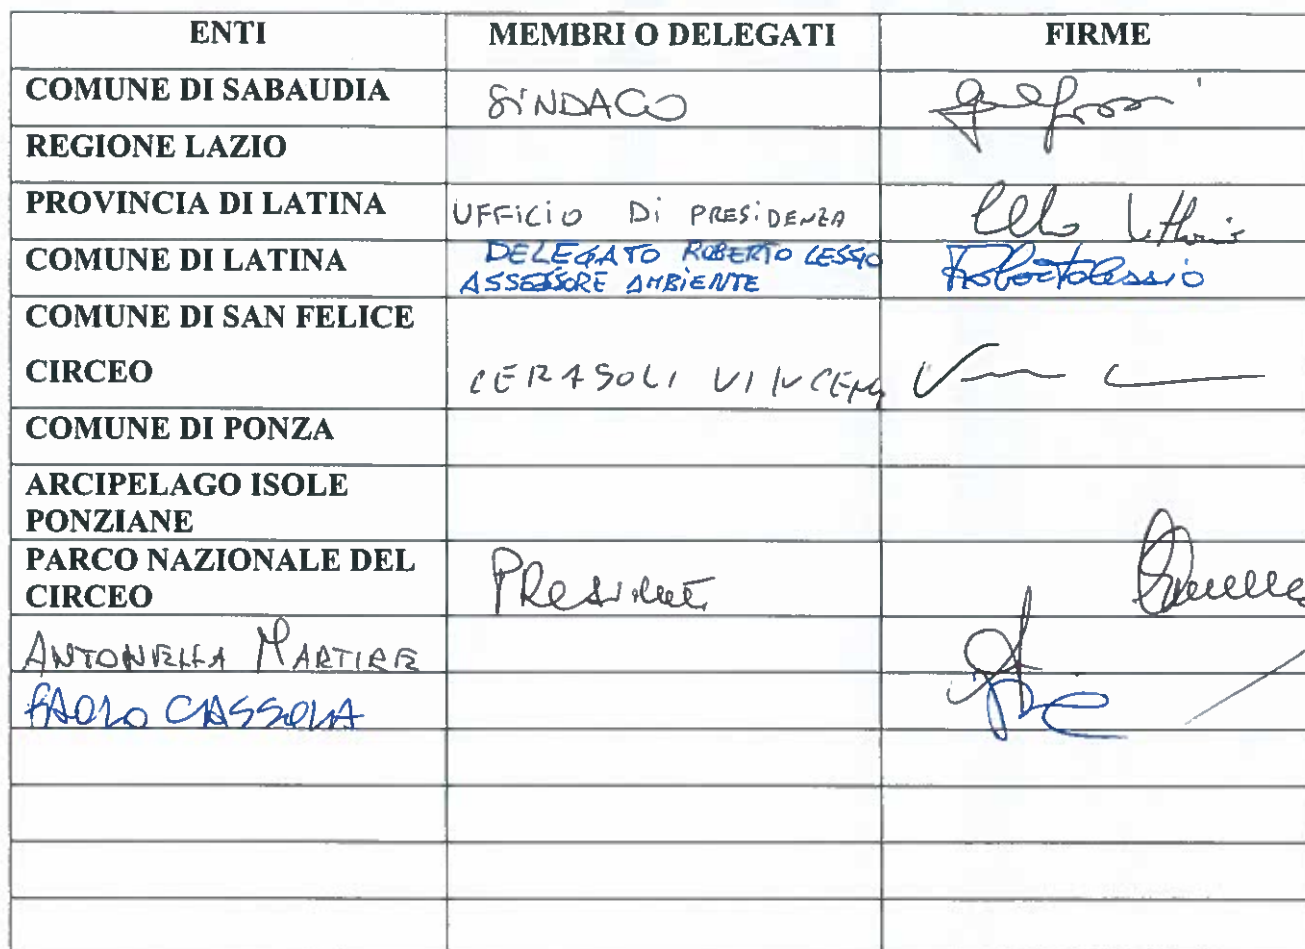 ENTI MEMBRI O DELEGATI FIRME
COMUNE DI SABAUDIA SINDACO
REGIONE LAZIO
PROVINCIA DI LATINA UFFICIO Di PRESiDENZA
COMUNE DI LATINA DELEGATO ROBERTO LESSIO
ASSESSORE AMBIENTE Roberto Lessio
COMUNE DI SAN FELICE
CIRCEO CERASOLI
COMUNE DI PONZA
ARCIPELAGO ISOLE
PONZIANE
PARCO NAZIONALE DEL
CIRCEO Presidente
ANTONELLA MARTIRE
PAOLO CASSOLA